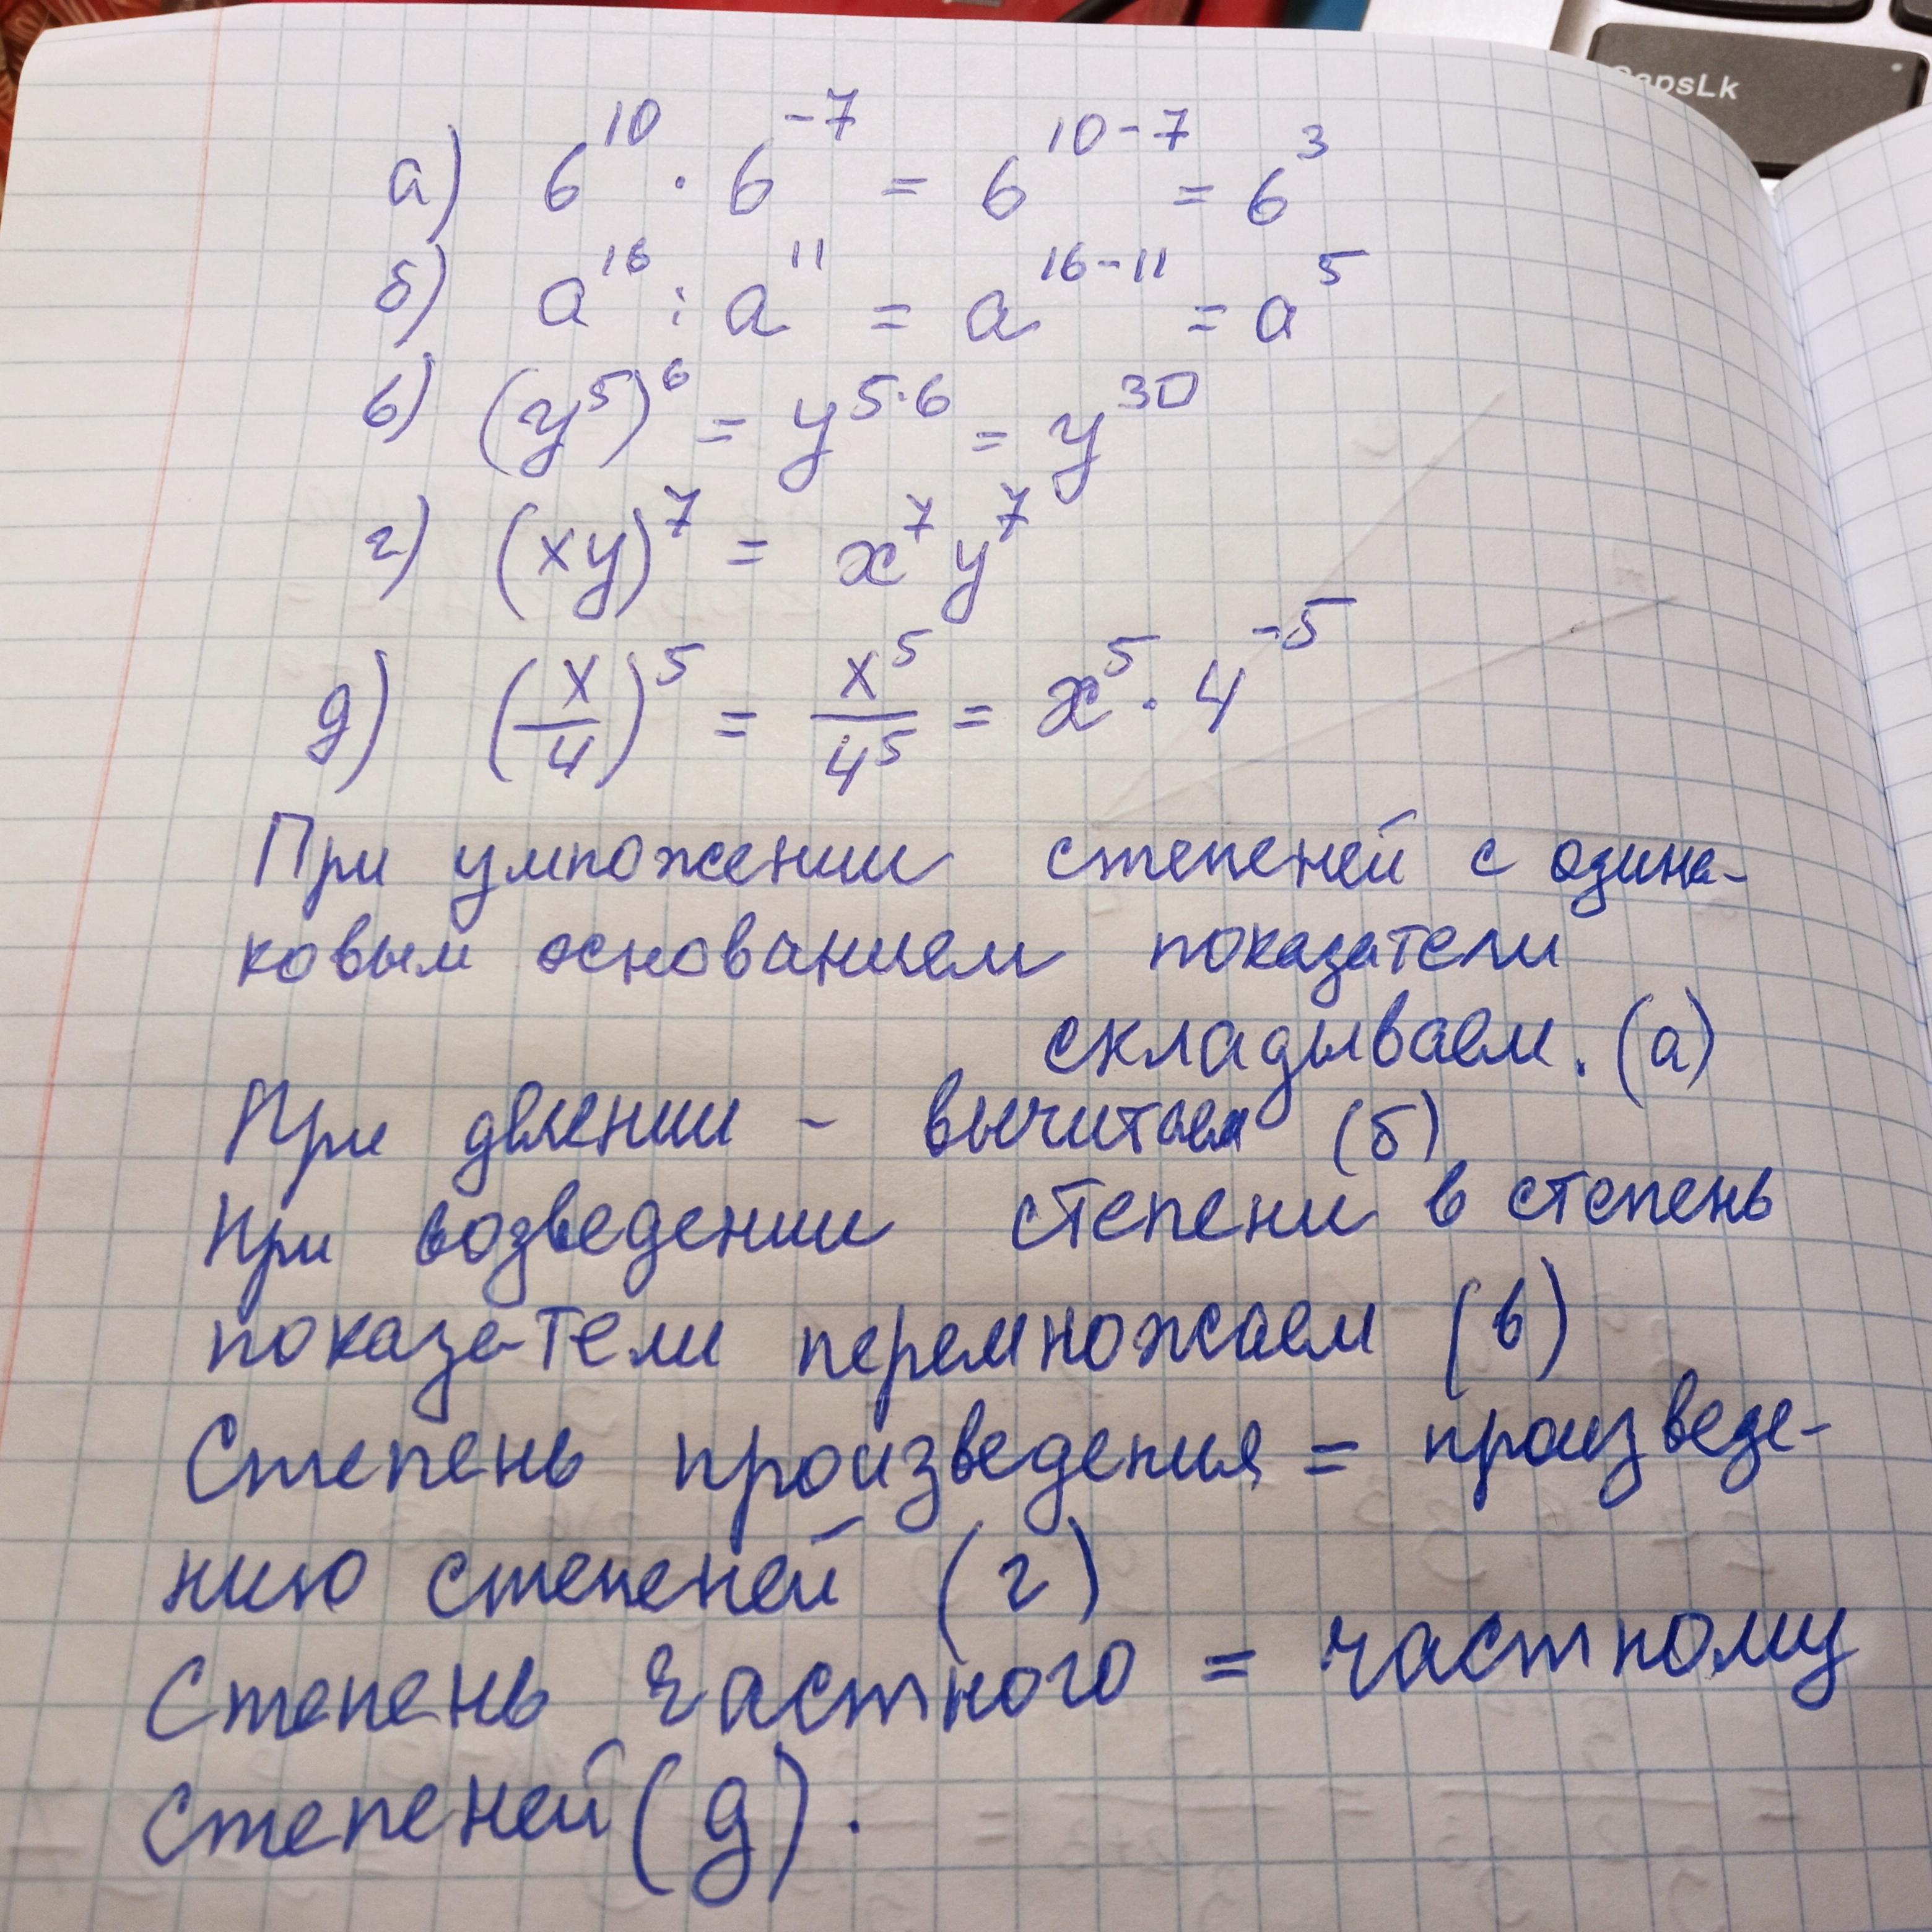 CapsLk
а) 6^10 · 6^-7 = 6^10-7 = 6^3
б) a^16 : a^11 = a^16-11 = a^5
в) (y^5)^6 = y^5·6 = y^30
г) (xy)^7 = x^7 y^7
д) (x/4)^5 = x^5/4^5 = x^5 · 4^-5
При умножении степеней с одина-
ковым основанием показатели
складываем. (а)
При делении - вычитаем (б)
При возведении степени в степень
показатели перемножаем (в)
Степень произведения = произведе-
нию степеней (г)
Степень частного = частному
степеней (д).